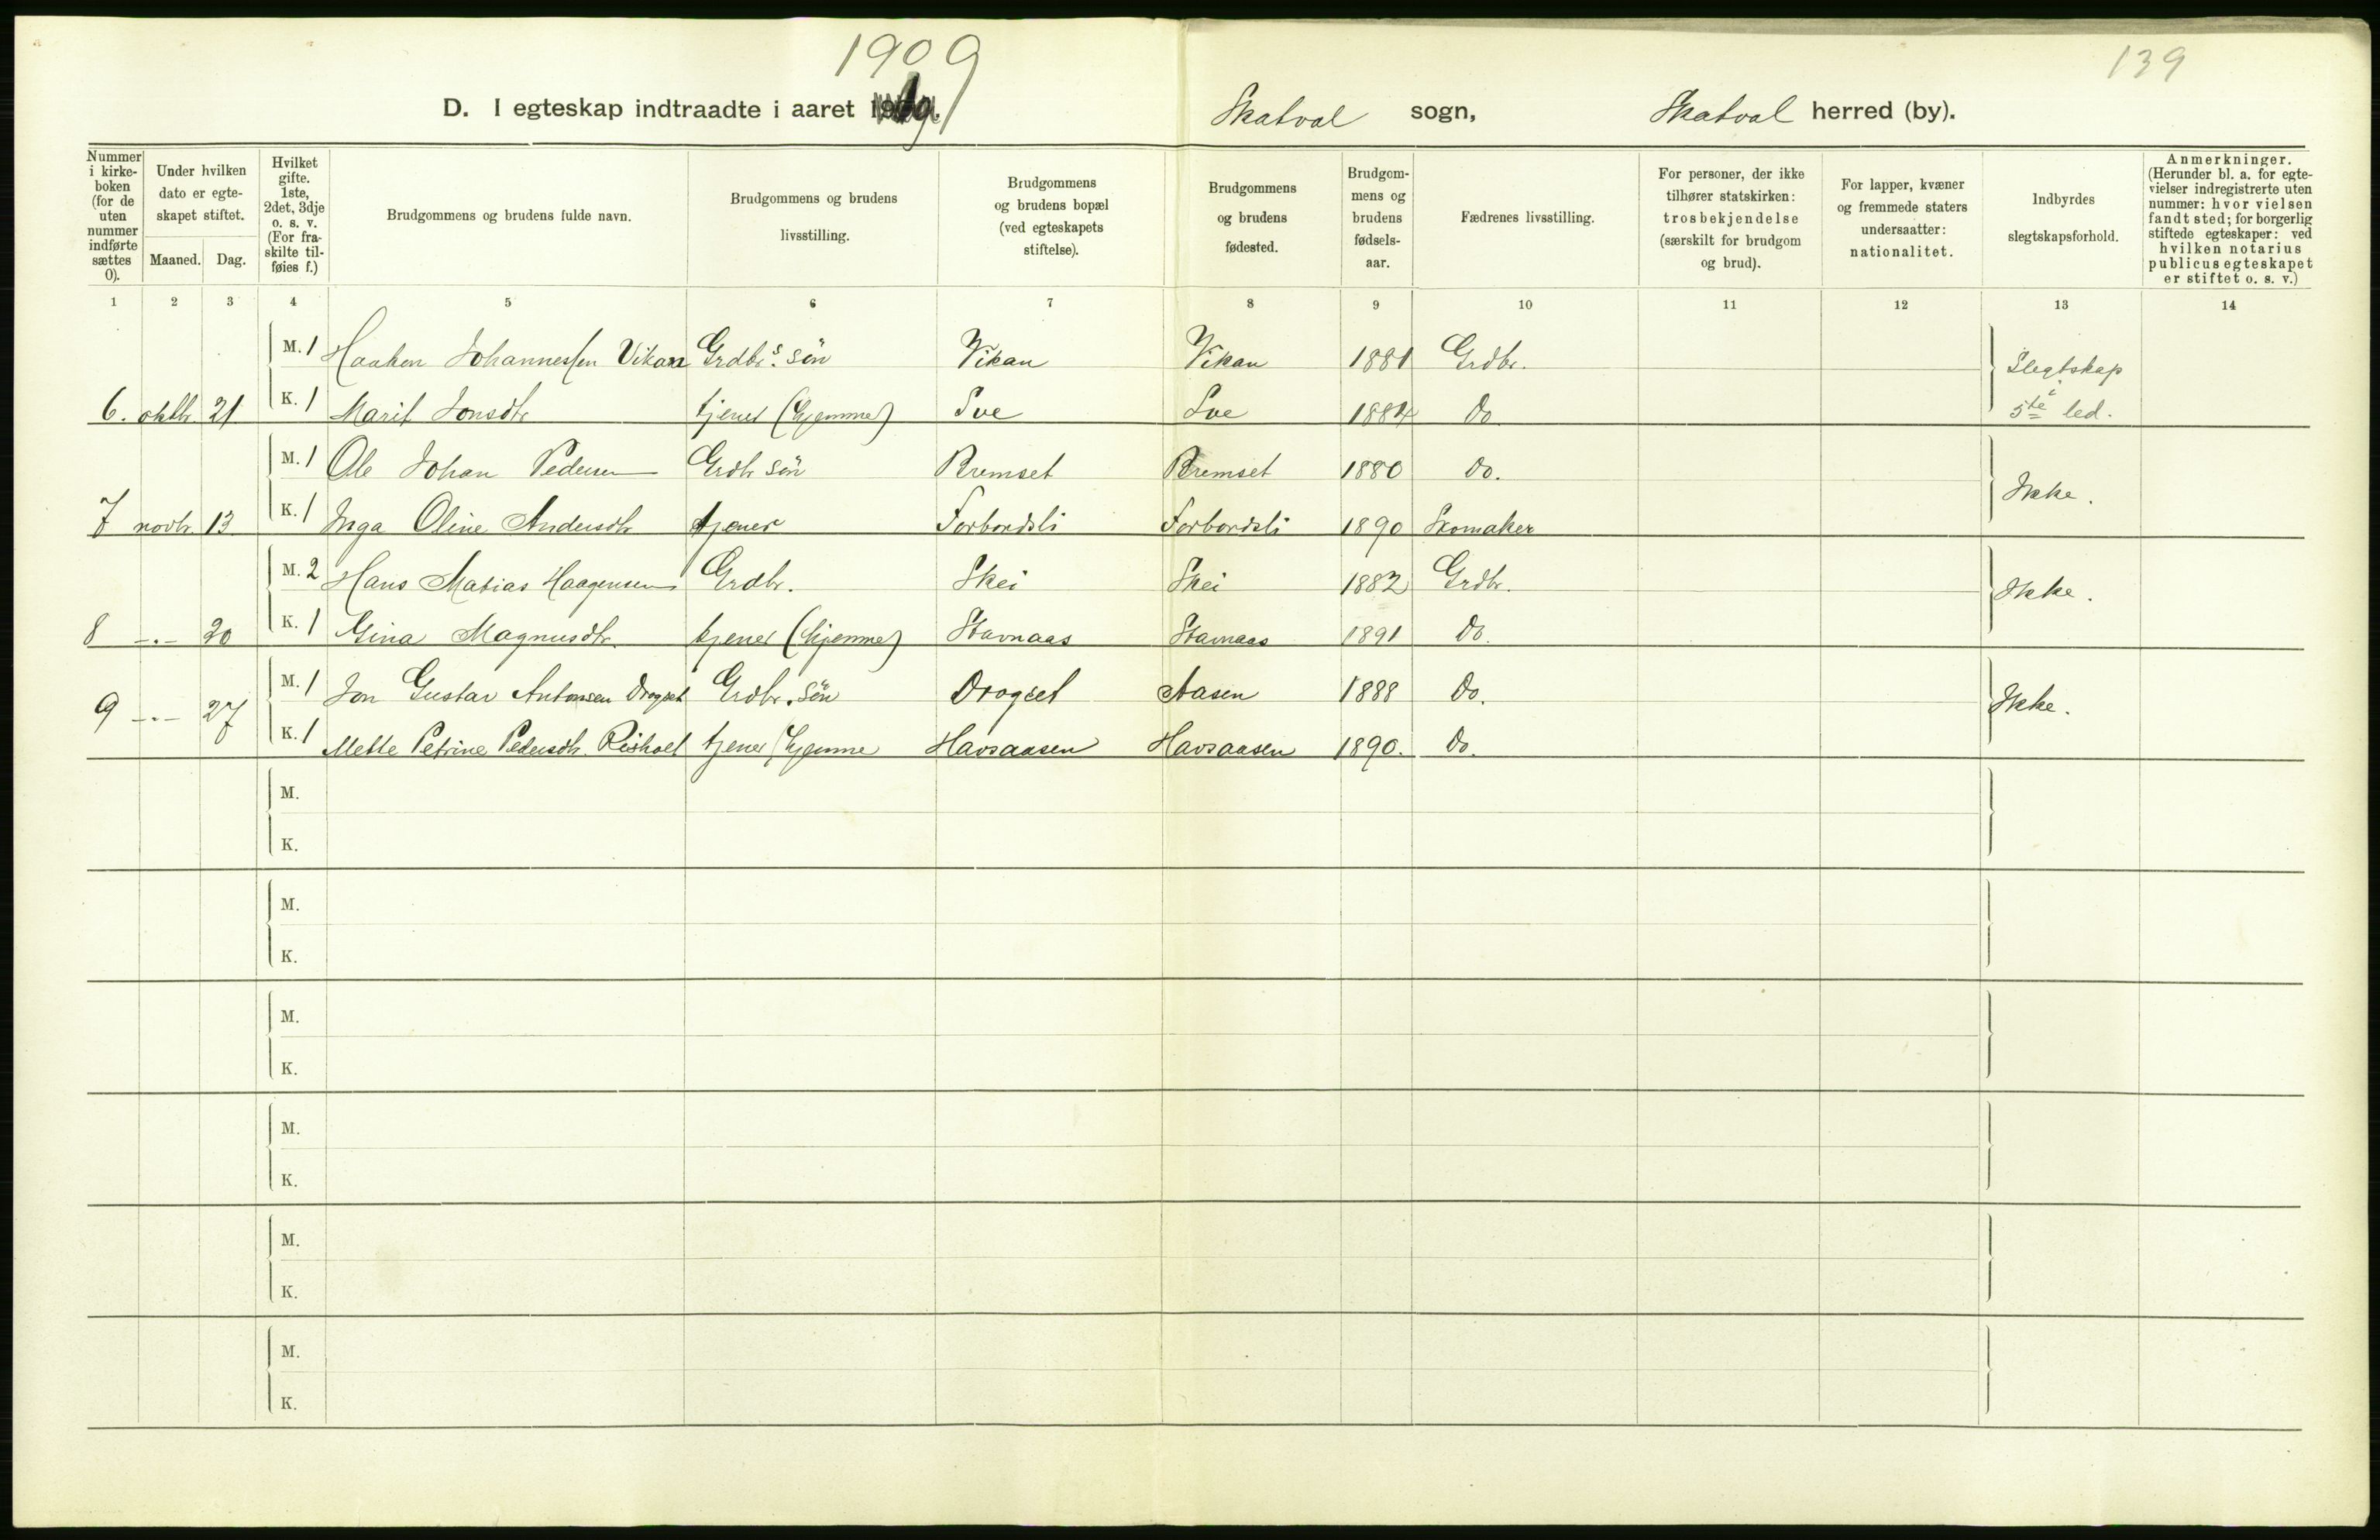 1909
139
D. I egteskap indtraadte i aaret 1909. Skatval sogn, Skatval herred (by).
Nummer i kirke-boken (for de uten nummer indførte sættes 0).
Under hvilken dato er egte-skapet stiftet.
Maaned. Dag.
Hvilket gifte. 1ste, 2det, 3dje o. s. v. (For fra-skilte til-føies f.)
Brudgommens og brudens fulde navn.
Brudgommens og brudens livsstilling.
Brudgommens og brudens bopæl (ved egteskapets stiftelse).
Brudgommens og brudens fødested.
Brudgom-mens og brudens fødsels-aar.
Fædrenes livsstilling.
For personer, der ikke tilhører statskirken: trosbekjendelse (særskilt for brudgom og brud).
For lapper, kvæner og fremmede staters undersaatter: nationalitet.
Indbyrdes slegtskapsforhold.
Anmerkninger. (Herunder bl. a. for egte-vielser indregistrerte uten nummer: hvor vielsen fandt sted; for borgerlig stiftede egteskaper: ved hvilken notarius publicus egteskapet er stiftet o. s. v.)
1 2 3 4 5 6 7 8 9 10 11 12 13 14
M. 1 Haaken Johannessen Vikan Grdbr.s sön Vikan Vikan 1881 Grdbr. Slegtskap i
6. oktbr. 21 K. 1 Marit Jonsdtr tjener (hjemme) Sve Sve 1884 Do 5te led.
M. 1 Ole Johan Pedersen Grdbr sön Bremset Bremset 1880 Do. Ikke.
7 novbr. 13 K. 1 Inga Oline Andersdtr tjener Forbordsli Forbordsli 1890 Skomaker
M. 2 Hans Matias Haagensen Grdbr. Skei Skei 1882 Grdbr. Ikke.
8 -.- 20 K. 1 Gina Magnusdtr. tjener (hjemme) Stavnaas Stavnaas 1891 Do.
M. 1 Jon Gustav Antonsen Drogset Grdbr. sön Drogset Aasen 1888 Do. Ikke.
9 -.- 27 K. 1 Mette Petrine Pedersdtr. tjener (hjemme Havsaasen Havsaasen 1890. Do.
M.
K.
M.
K.
M.
K.
M.
K.
M.
K.
M.
K.